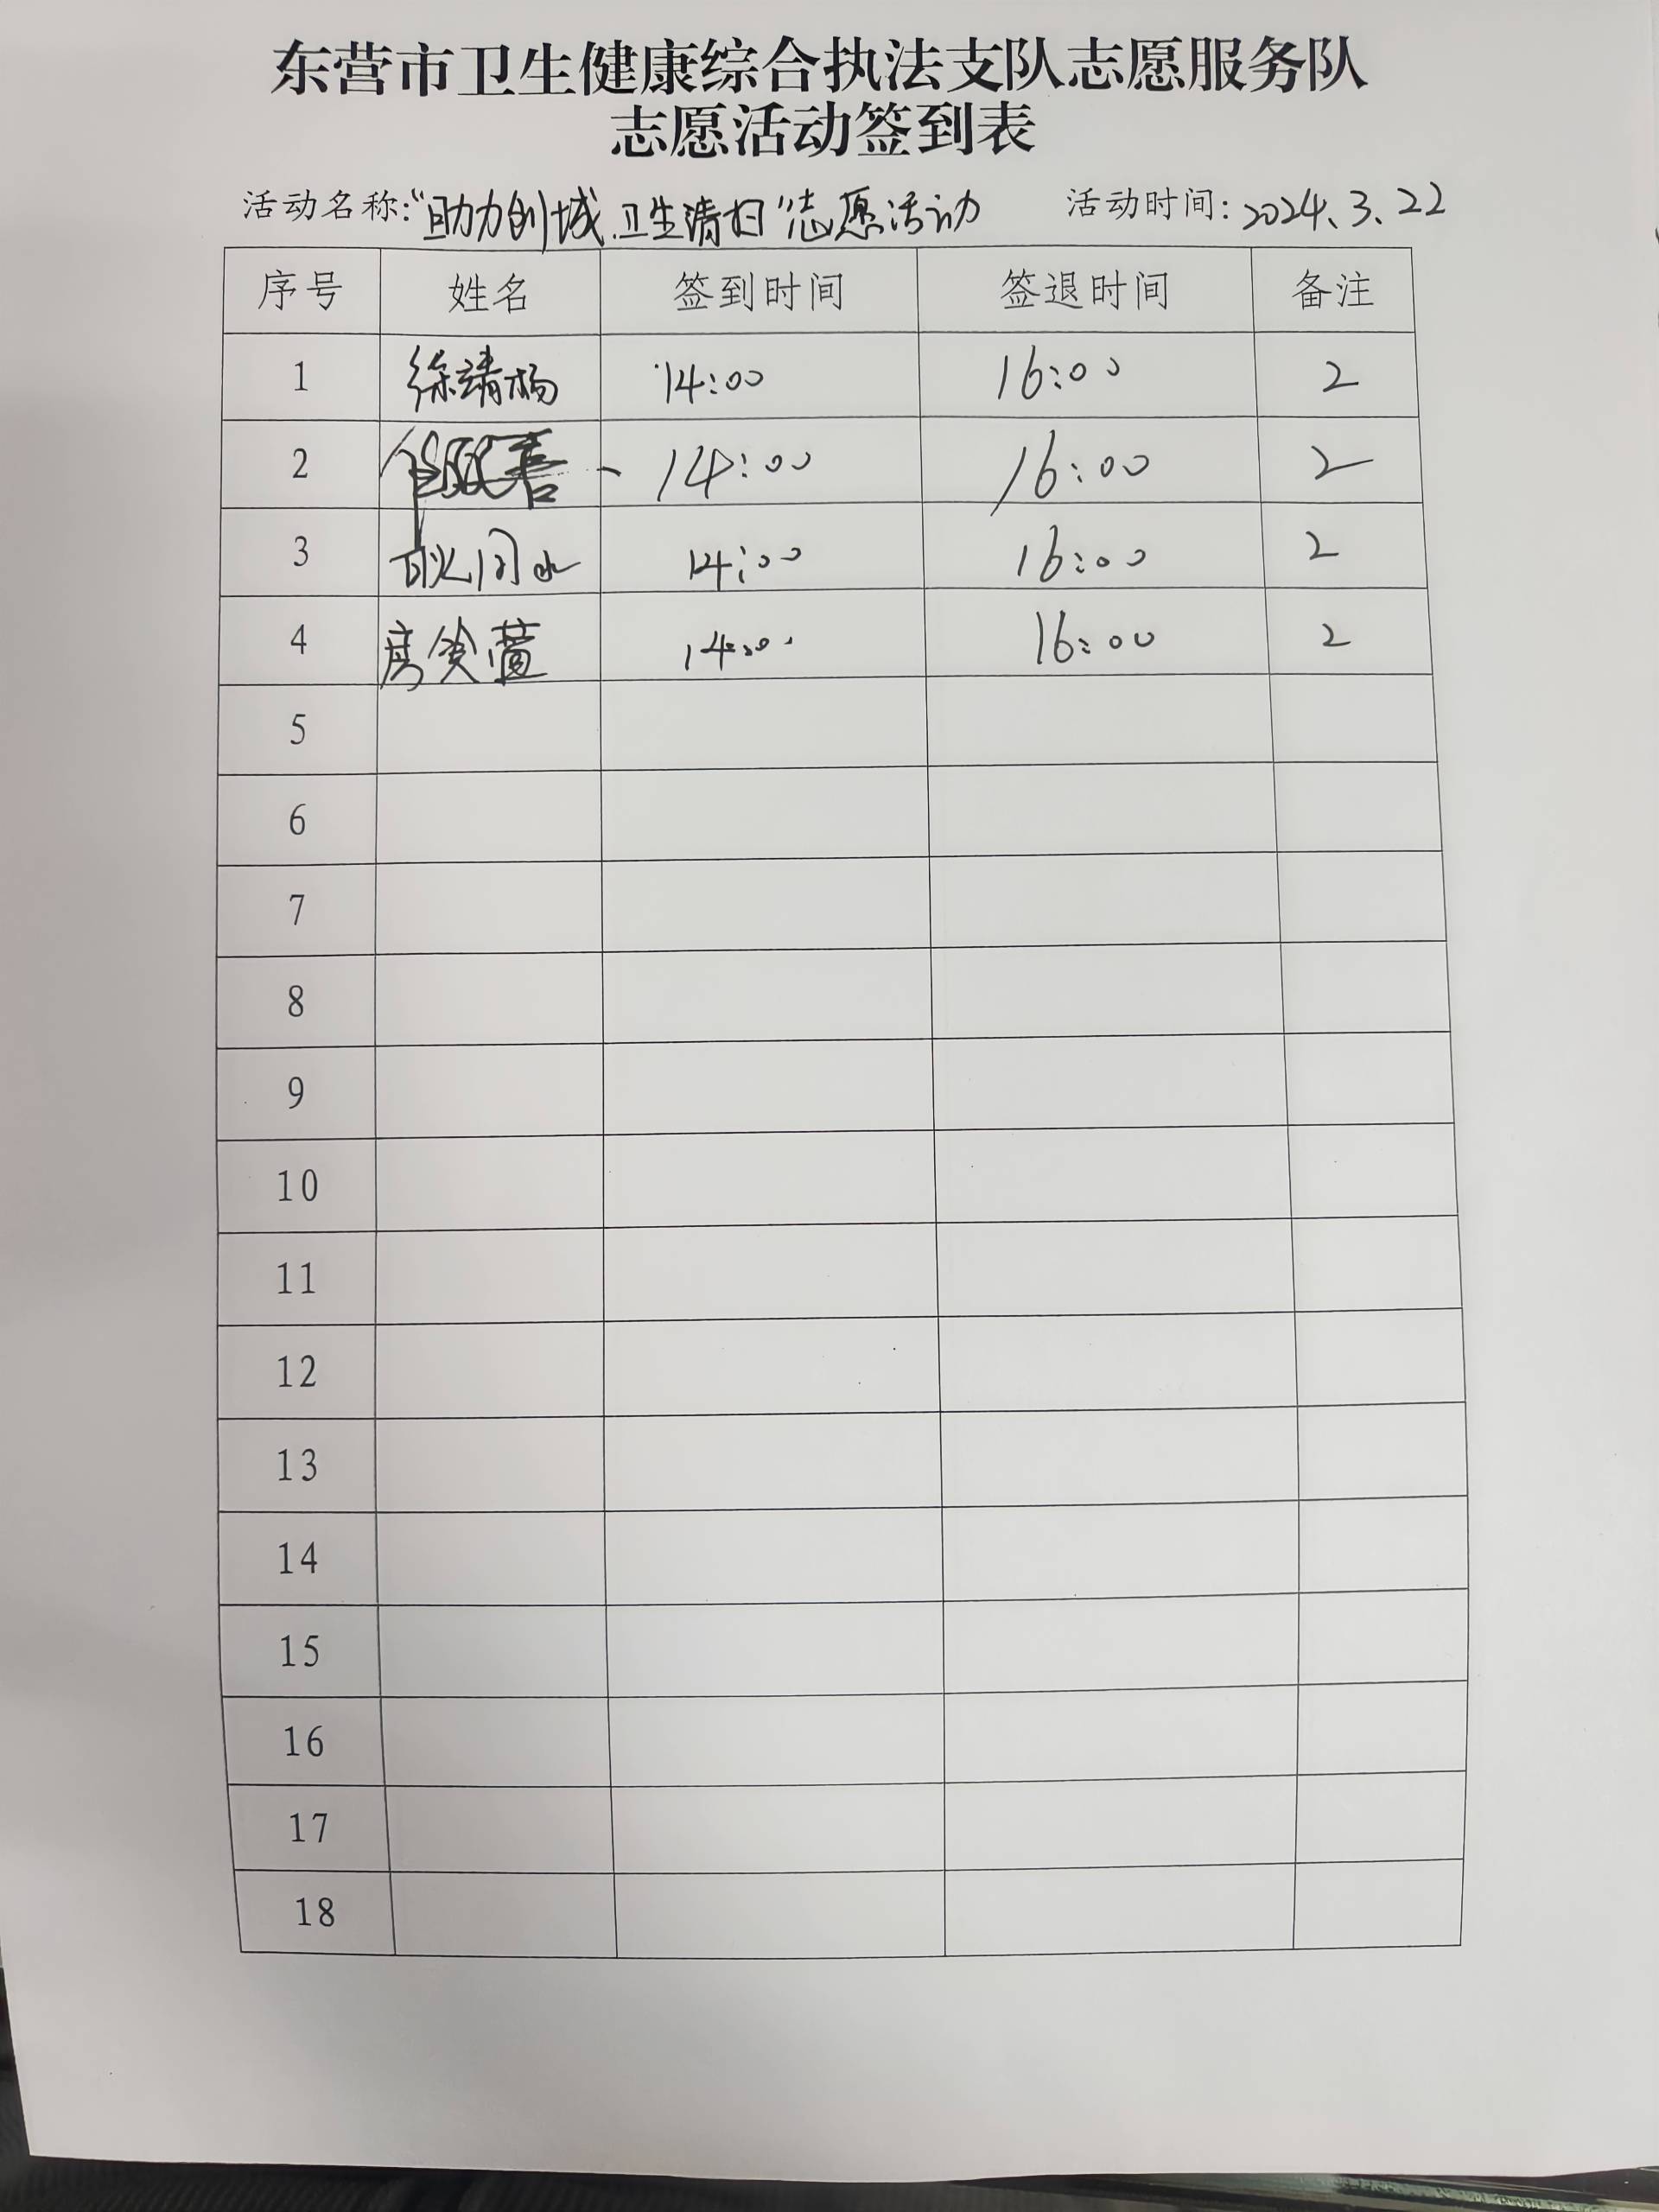 东营市卫生健康综合执法支队志愿服务队
志愿活动签到表
活动名称:“助力创城 卫生清扫”志愿活动 活动时间: 2024.3.22
序号 姓名 签到时间 签退时间 备注
1 徐靖杨 14:00 16:00 2
2 14:00 16:00 2
3 14:00 16:00 2
4 14:00 16:00 2
5
6
7
8
9
10
11
12
13
14
15
16
17
18